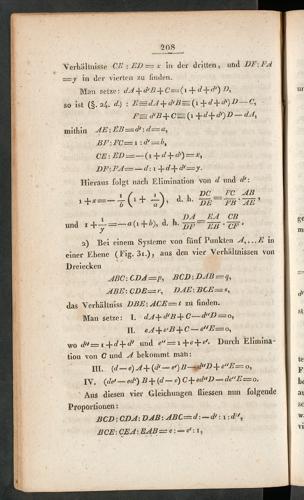 208
Verhältnisse CE : ED = x in der dritten, und DF : FA
= y in der vierten zu finden.
Man setze: dA + d'B + C ≡ (1 + d + d') D,
so ist (§. 24. d.) : E ≡ dA + d'B ≡ (1 + d + d') D — C,
F ≡ d'B + C ≡ (1 + d + d') D — dA,
mithin AE : EB = d' : d = a,
BF : FC = 1 : d' = b,
CE : ED = — (1 + d + d') = x,
DF : FA = — d : 1 + d + d' = y.
Hieraus folgt nach Elimination von d und d':
1 + x = — 1/b (1 + 1/a), d. h. DC/DE = FC/FB · AB/AE,
und 1 + 1/y = — a (1 + b), d. h. DA/DF = EA/EB · CB/CF.
2) Bei einem Systeme von fünf Punkten A,... E in
einer Ebene (Fig. 31.), aus den vier Verhältnissen von
Dreiecken
ABC : CDA = p, BCD : DAB = q,
ABE : CDE = r, DAE : BCE = s,
das Verhältniss DBE : ACE = t zu finden.
Man setze: I. dA + d'B + C — d''D = 0,
II. eA + e'B + C — e''E = 0,
wo d'' = 1 + d + d' und e'' = 1 + e + e'. Durch Elimina-
tion von C und A bekommt man:
III. (d — e) A + (d' — e') B — d''D + e''E = 0,
IV. (de' — ed') B + (d — e) C + ed''D — de''E = 0.
Aus diesen vier Gleichungen fliessen nun folgende
Proportionen:
BCD : CDA : DAB : ABC = d : — d' : 1 : d'',
BCE : CEA : EAB = e : — e' : 1,